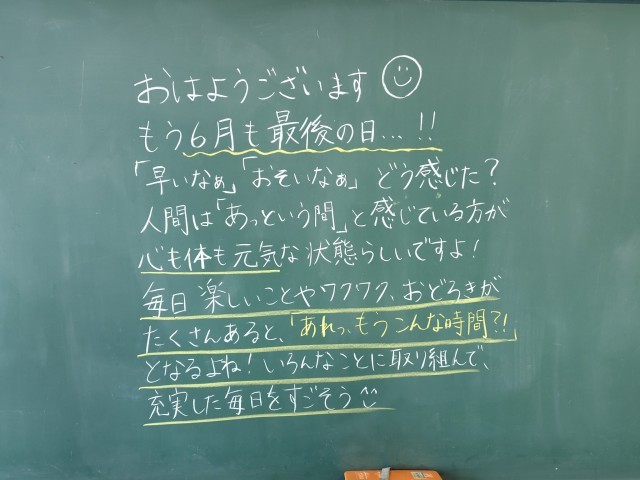 おはようございます
もう6月も最後の日...!!
「早いなぁ」「おそいなぁ」どう感じた?
人間は「あっという間」と感じている方が
心も体も元気な状態らしいですよ!
毎日楽しいことやワクワク、おどろきが
たくさんあると、「あれっ、もうこんな時間?!」
となるよね!いろんなことに取り組んで、
充実した毎日をすごそう